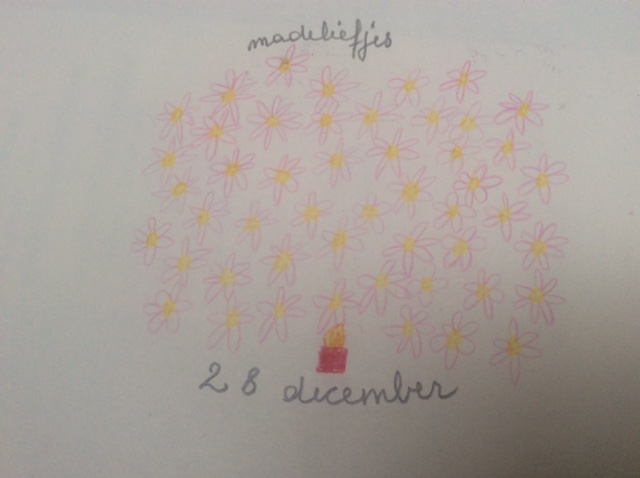 madeliefjes
28 december